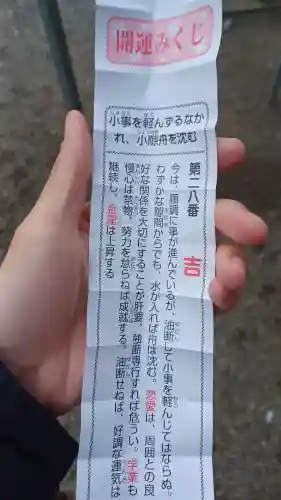 開運みくじ
小事を軽んずるなか
れ、小隙舟を沈む
第二八番
吉
今は、順調に事が進んでいるが、油断して小事を軽んじてはならぬ。
わずかな隙間からでも、水が入れば舟は沈む。恋愛は、周囲との良
好な関係を大切にすることが肝要。独断専行すれば危うい。学業も
慢心は禁物。努力を怠らねば成就する。油断せねば、好調な運気は
継続し、金運は上昇する